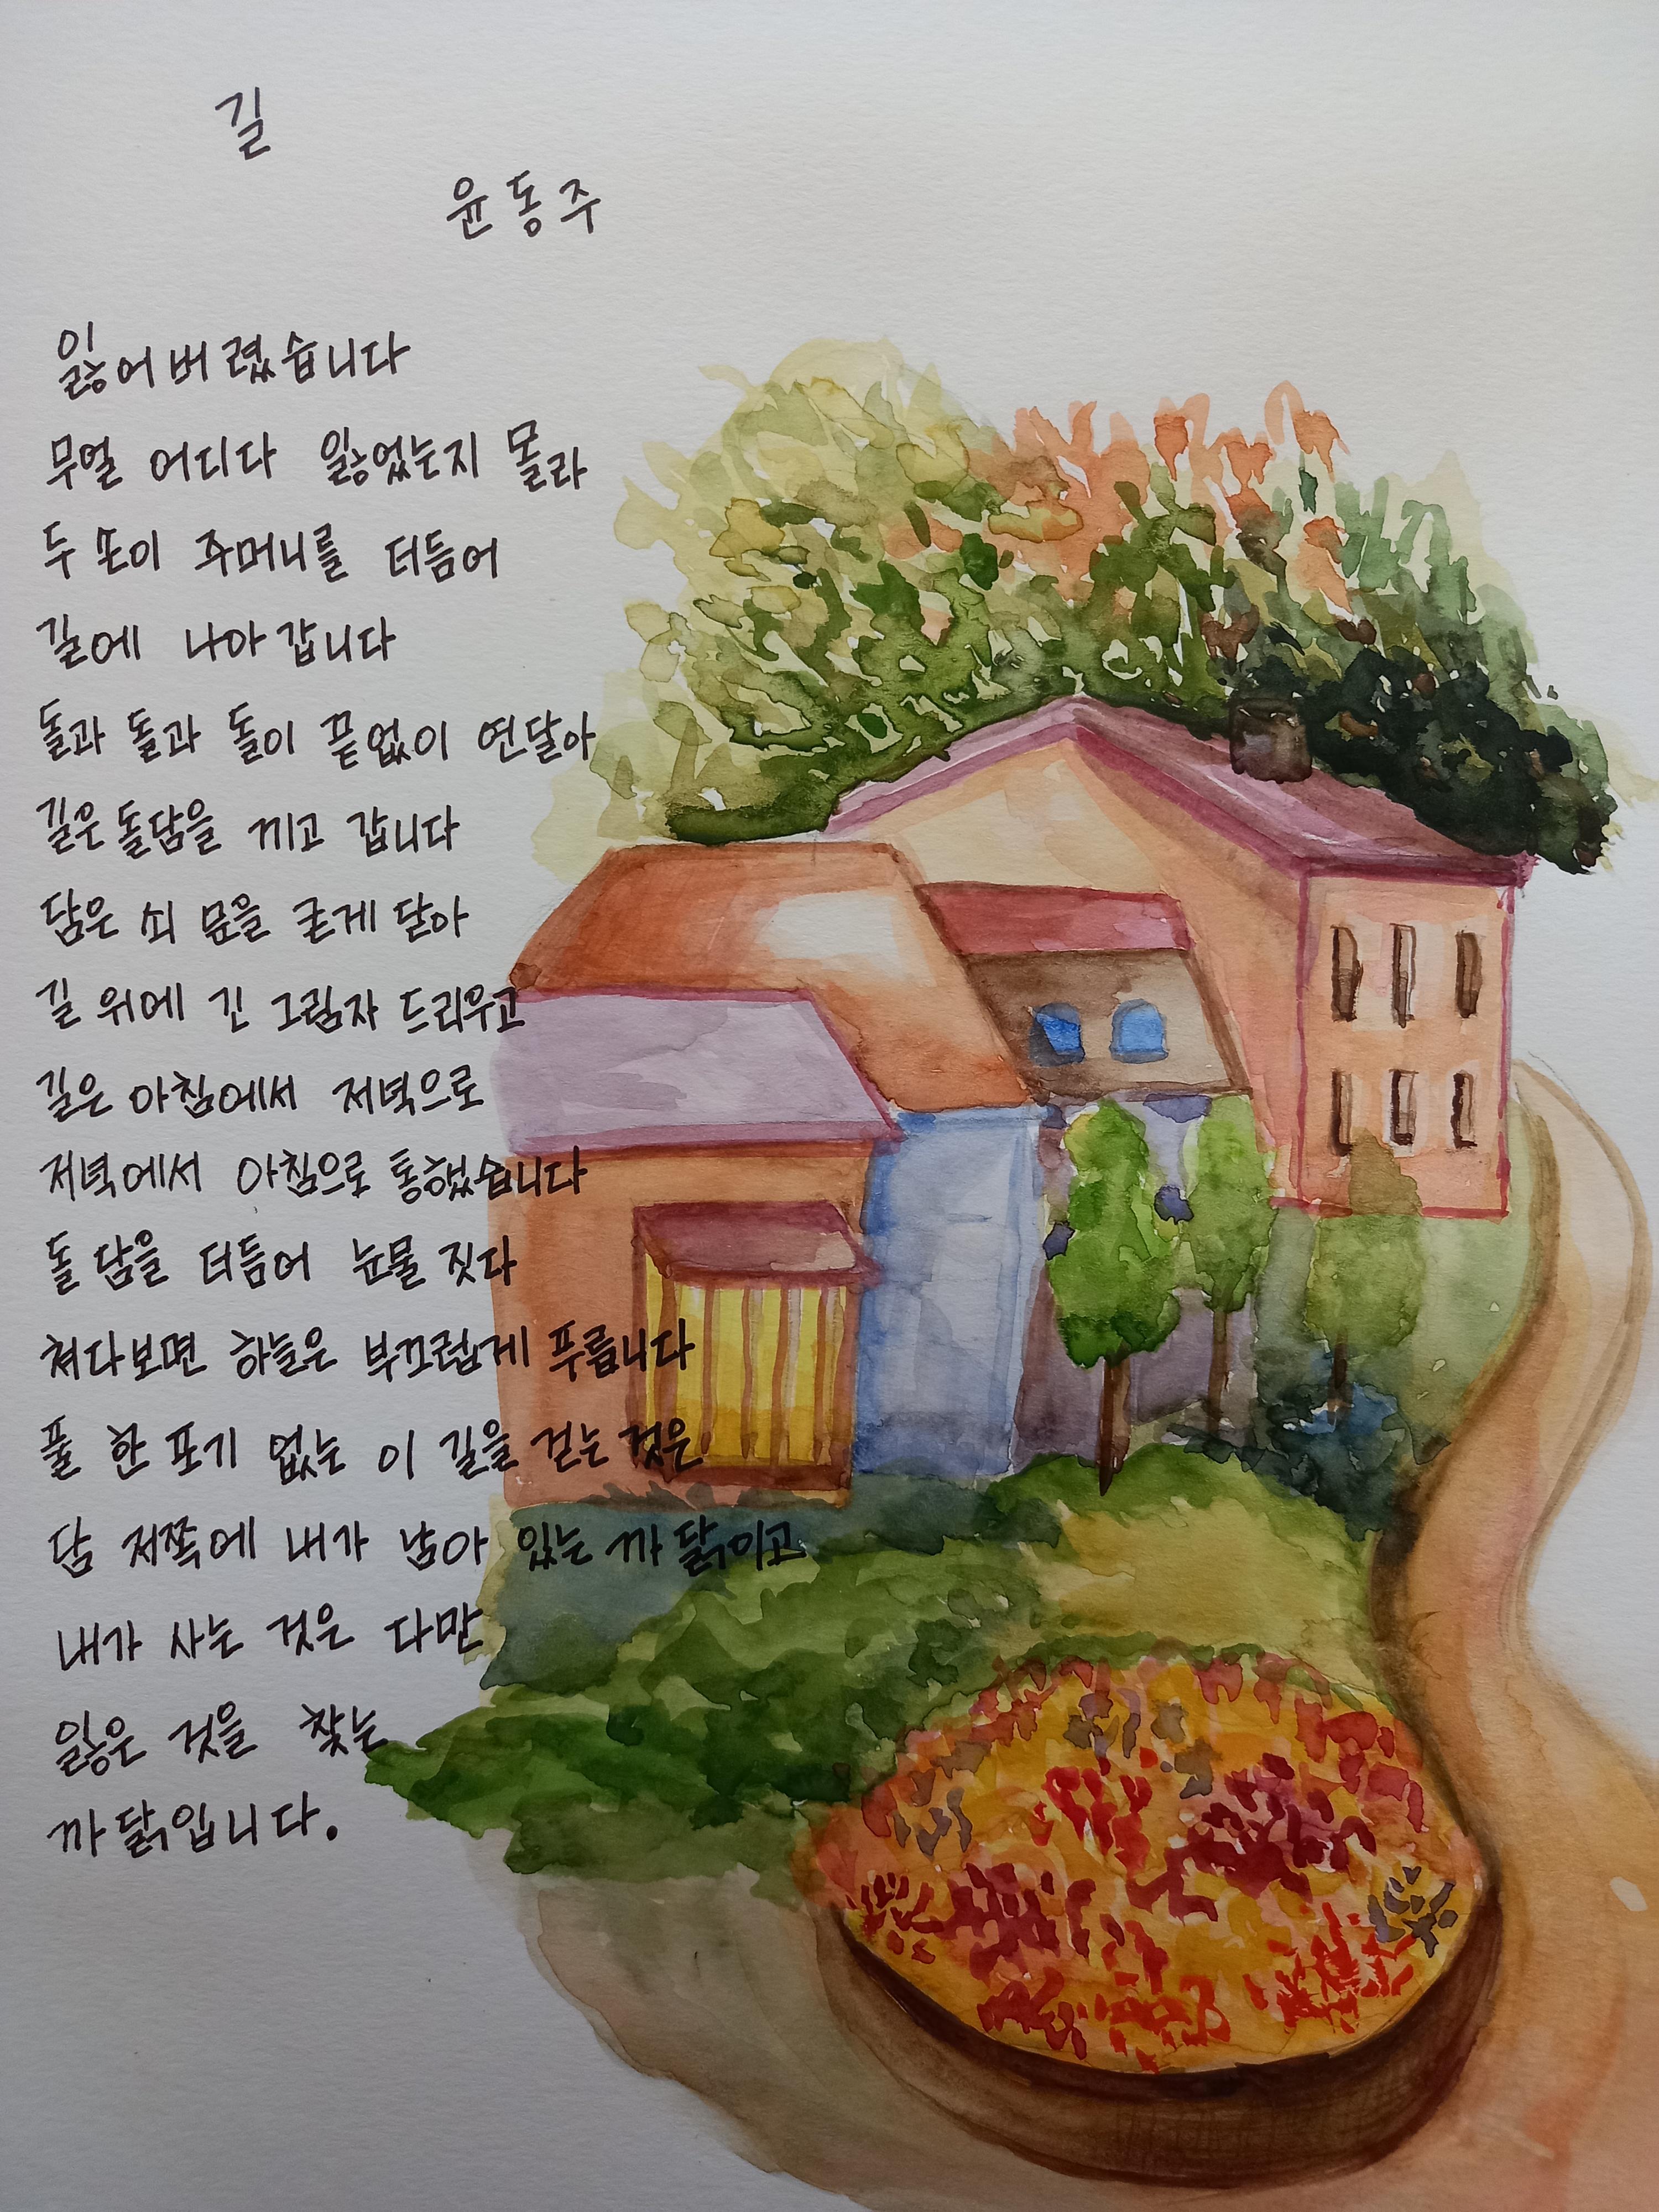 길
윤동주
잃어버렸습니다
무얼 어디다 잃었는지 몰라
두 손이 주머니를 더듬어
길에 나아갑니다
돌과 돌과 돌이 끝없이 연달아
길은 돌담을 끼고 갑니다
담은 쇠 문을 굳게 닫아
길 위에 긴 그림자 드리우고
길은 아침에서 저녁으로
저녁에서 아침으로 통했습니다
돌 담을 더듬어 눈물 짓다
쳐다보면 하늘은 부끄럽게 푸릅니다
풀 한 포기 없는 이 길을 걷는 것은
담 저쪽에 내가 남아 있는 까닭이고
내가 사는 것은 다만
잃은 것을 찾는
까닭입니다.